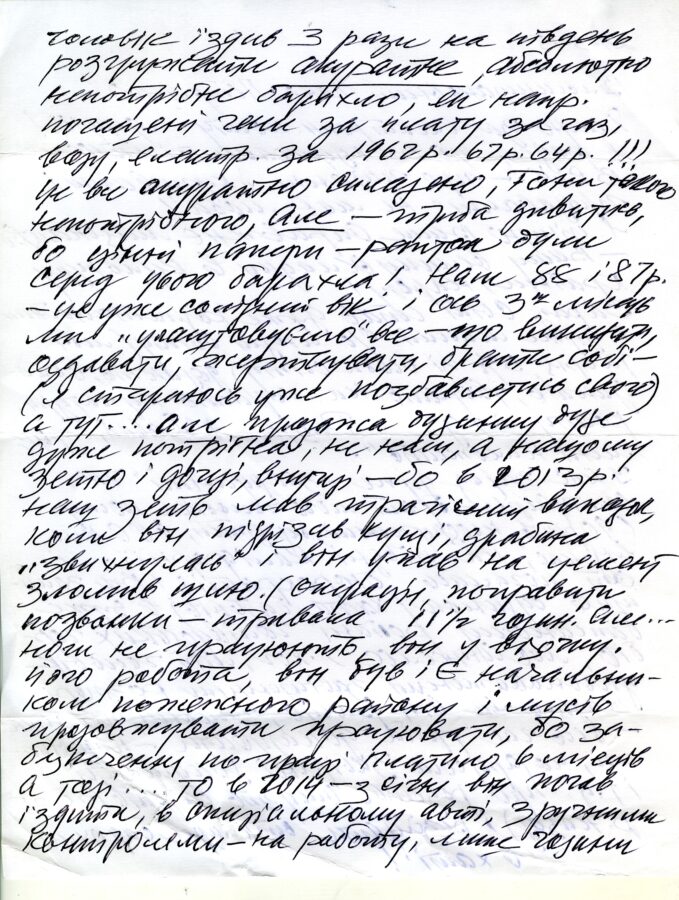 чоловік їздив 3 рази на південь
розгружати акуратне, абсолютно
непотрібне барахло, як напр.
погашені чеки за плату за газ,
воду, електр. за 1962р. 67р. 64р. !!!
це все акуратно складено, тони такого
непотрібного, Але – треба дивитись,
бо цінні папери – раптом були
серед цього барахла! Нам 88 і 87р.
– це уже солідний вік і ось 3й місяць
ми „упаковуємо" все – що викидати,
віддавати, жертвувати, брати собі –
(я стараюсь уже позбавлятись свого)
а тут.... Але продажа будинку дуже
дуже потрібна, не нам, а нашому
зетю і доці, внуці – бо в 2013р.
наш зять мав трагічний випадок,
коли він підрізав кущі, драбина
„звихнулась" і він упав на цемент
зломив шию. (Операція, поправити
позвонки – тривала 11½ годин. Але...
ноги не працюють, він у візочку.
Його робота, він був і є начальни-
ком пожежного району і мусів
продовжувати працювати, бо за-
безпечення по праці платило 6 місяців
а тоді.... То в 2014 – з січня він почав
їздити, в спеціальному авті, з ручними
контролями – на роботу, лише години